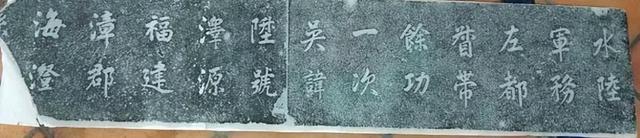 水陸
軍務
左都
督帶
餘功
一次
吳諱
陞號
澤源
福建
漳郡
海澄